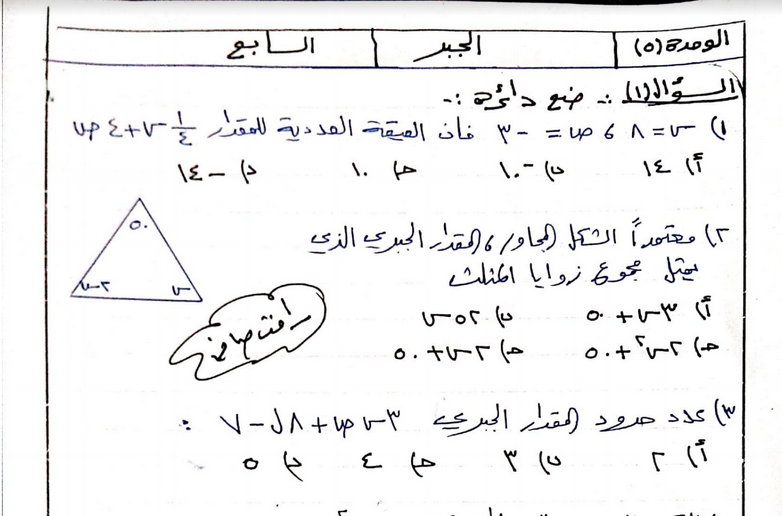 الوحدة (٥) الجبر السابع
السؤال (١) :- ضع دائرة :-
١) س = ٨ ، ص = -٣ فان القيمة العددية للمقدار ١/٤ س + ٤ ص
أ) ١٤ ب) -١٠ جـ) ١٠ د) -١٤
٢) معتمداً الشكل المجاور ، المقدار الجبري الذي
يمثل مجموع زوايا المثلث
٥٠
٢س
س
أ) ٣س + ٥٠ ب) ٥٢س
جـ) ٢س٢ + ٥٠ د) ٢س + ٥٠
٣) عدد حدود المقدار الجبري ٣س ص + ٨ل - ٧ :
أ) ٢ ب) ٣ جـ) ٤ د) ٥